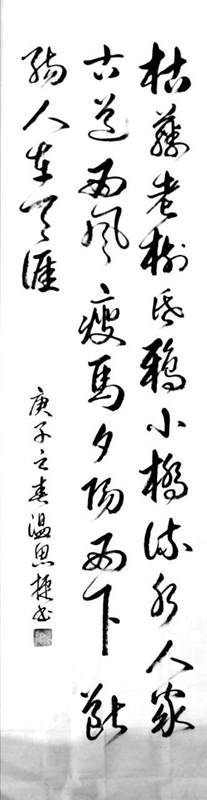 枯藤老樹昏鴉小橋流水人家
古道西風瘦馬夕陽西下斷
腸人在天涯
庚子之春温思捷书